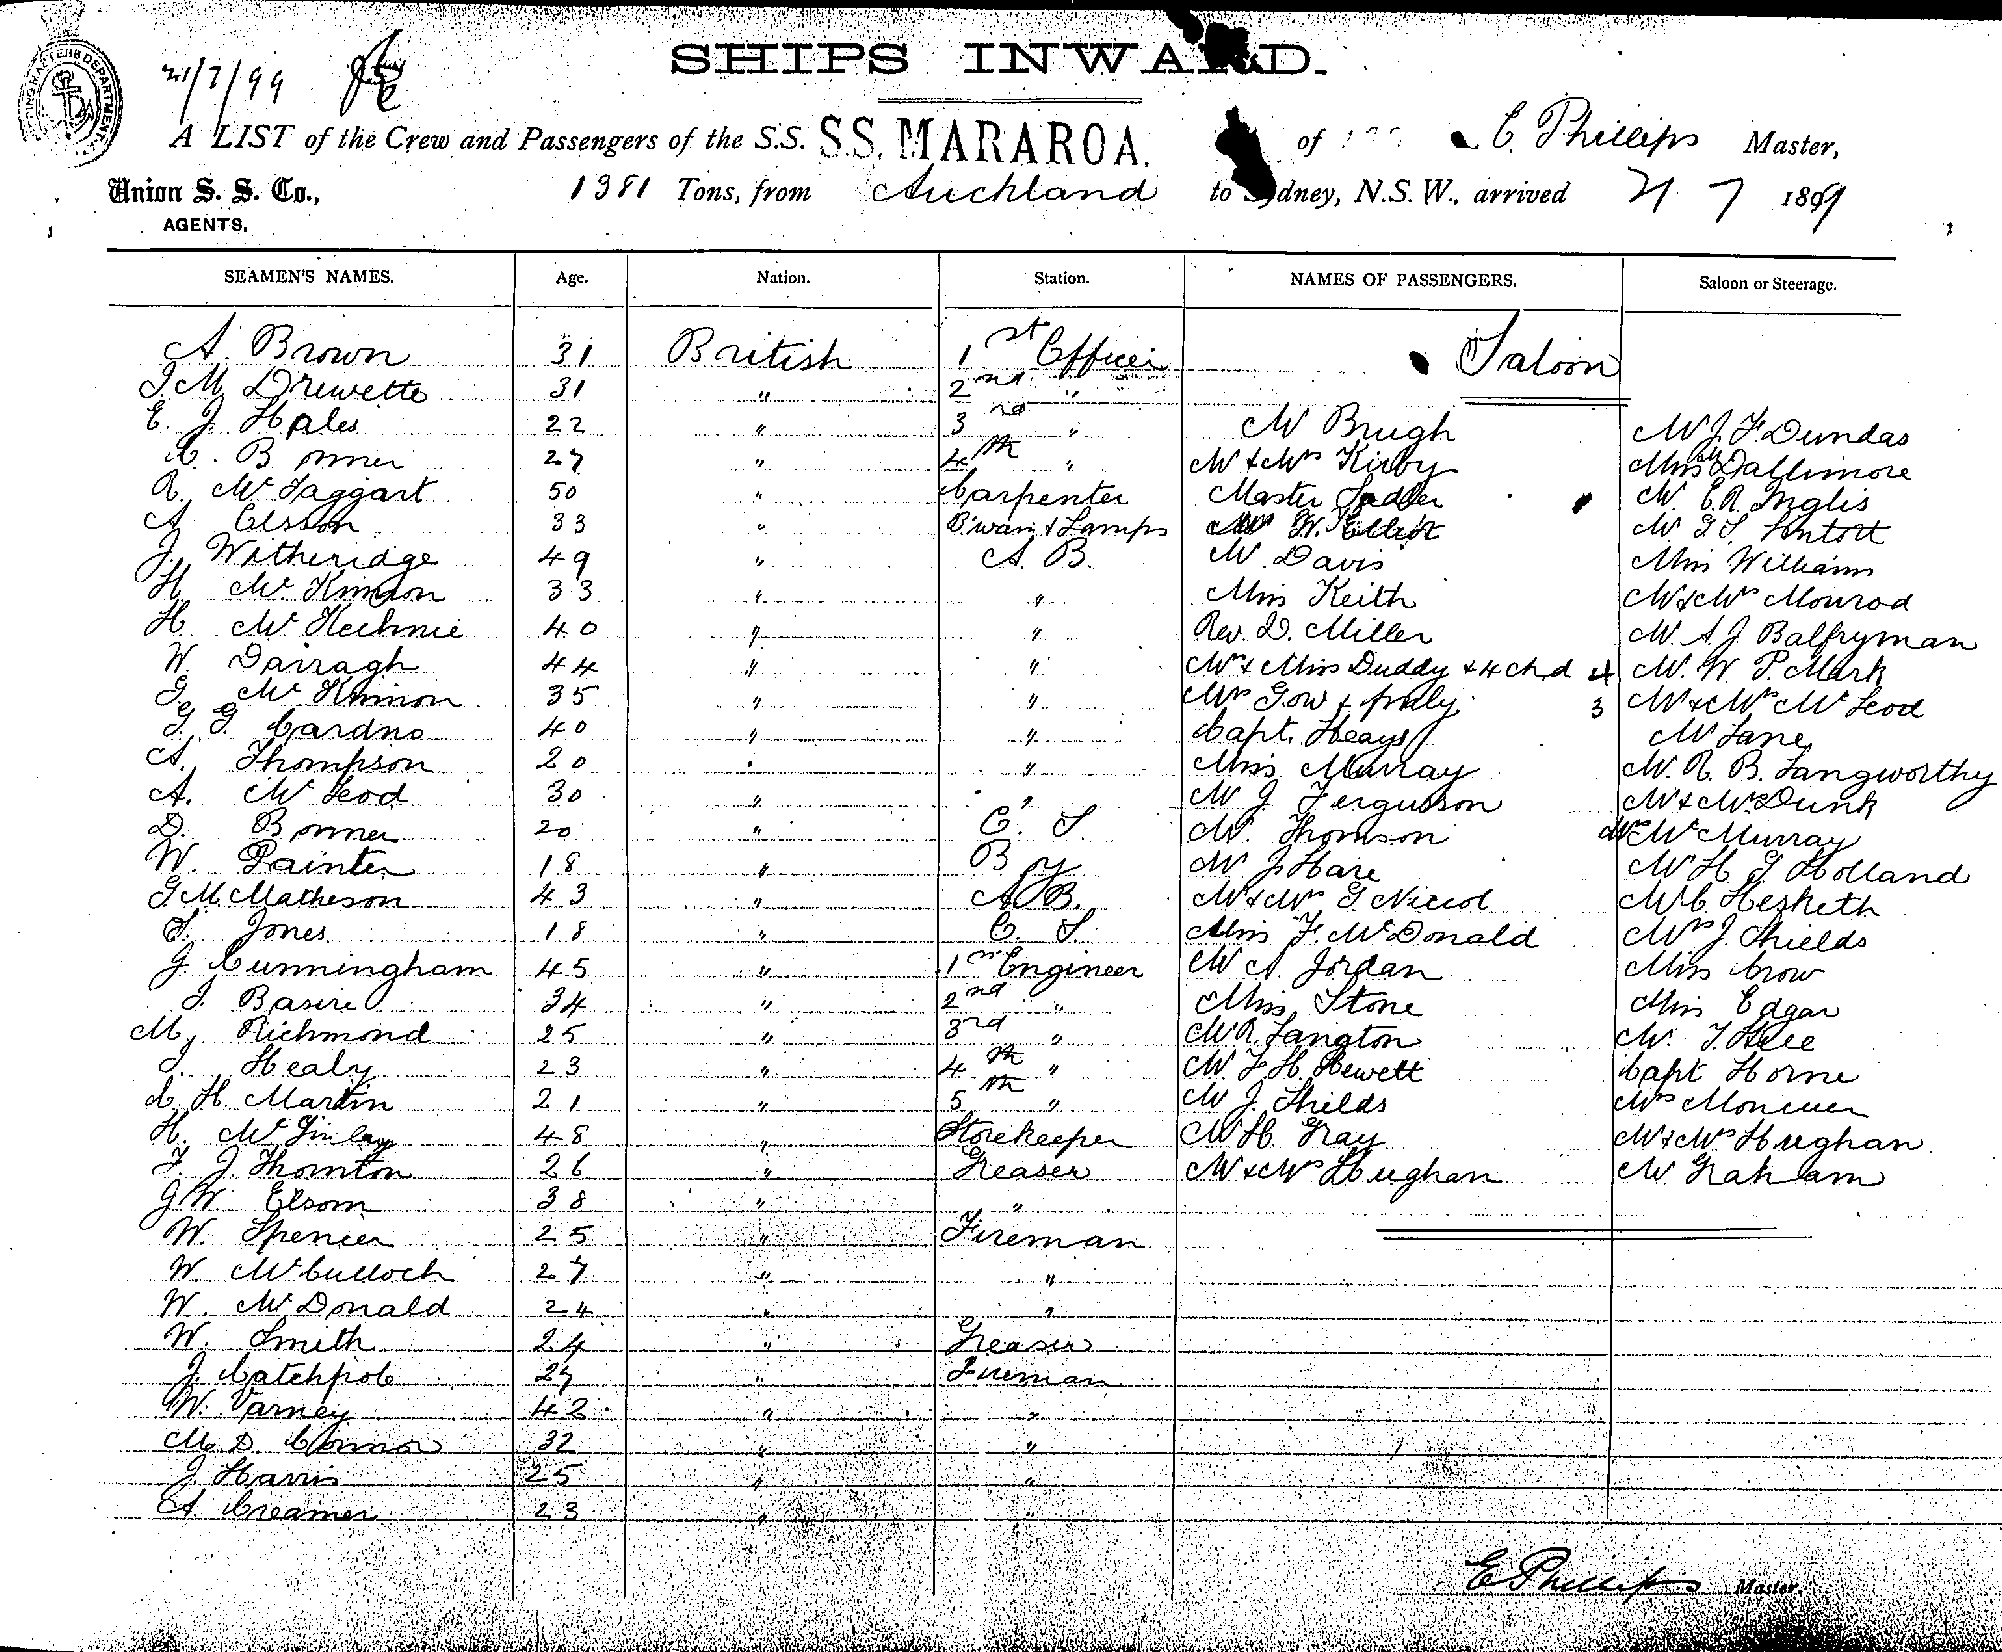 21/7/99
SHIPS INWARD.
A LIST of the Crew and Passengers of the S.S. S.S. MARAROA. of E Phillips Master,
Union S. S. Co., 1381 Tons, from Auckland to Sydney, N.S.W., arrived 21 7 1899
AGENTS.
SEAMEN'S NAMES. Age. Nation. Station. NAMES OF PASSENGERS. Saloon or Steerage.
A. Brown 31 British 1st Officer Saloon
J. M. Drewette 31 " 2nd "
E. J. Hales 22 " 3rd " Mr Brugh Mr J. F. Dundas
C. Bonner 27 " 4th " Mr & Mrs Kirby Miss Dallimore
R. McTaggart 50 " Carpenter Master Sadler Mr C. R. Inglis
A 33 " B'wain & Lamps W. Elliot Mr
J. Wotheridge 49 " A. B. Mr Davis Miss Williams
H McKinnon 33 " " Miss Keith Mr & Mrs Monrod
H McKechnie 40 " " Rev. D. Miller Mr A J Balfryman
W. Darragh 44 " " & Miss Duddy & 4 chd 4 Mr W. P. Mark
McKinnon 35 " " Mrs Gow & fmly 3 Mr & Mrs McLeod
G. Cardno 40 " " Capt. Heays Mr Lane
A. Thompson 20 " " Miss Murray Mr R. B. Langworthy
A. McLeod 30 " " Mr J Fergusson Mr & Mrs Dunk
D. Bonner 20 " O. S. Mr Thomson Mr Murray
W. Painter 18 " Boy Mr J Hare Mr H J Holland
G M Matheson 43 " A B. Mr & Mrs G Niccol Mr C Hesketh
S. Jones 18 " O. S. Miss F McDonald Mrs J Shields
J. Cunningham 45 " 1st Engineer Mr A. Jordan Miss Crow
J. Basire 34 " 2nd " Miss Stone Miss Edgar
M. Richmond 25 " 3rd " Mr R. Langton Mr
J. Healy 23 " 4th " Mr F H. Hewett Capt Horne
C H Martin 21 " 5th " Mr J. Shields
H. McGinlay 48 " Storekeeper Mr H. Gray Mr & Mrs Hughan
F. J. Thornton 26 " Greaser Mr & Mrs Hughan Mr Graham
J. W. Elsom 38 " "
W. Spencer 25 " Fireman
W McCulloch 27 " "
W. McDonald 24 " "
W. Smith 24 " Greaser
J. Catchpole 27 " Fireman
W. Varney 42 " "
M O Connor 32 " "
J Harris 25 " "
A Creamer 23 " "
E Phillips Master.